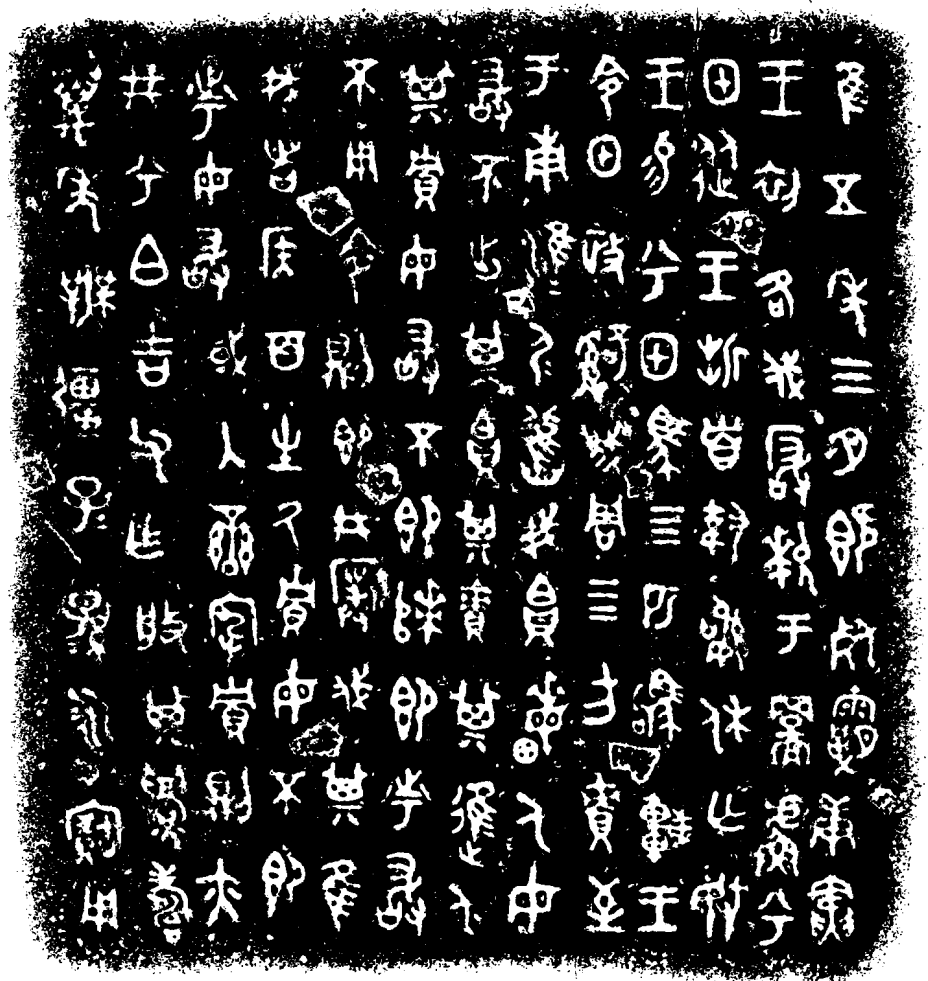 隹五年三月既死霸庚寅
王初各伐玁狁于䚇䖒兮
甲從王折首執訊休亡敃
王易兮甲馬四匹駒車王
令甲政𤔲成周四方責至
于南淮尸淮尸舊我𧵩畮人毋
敢不出其𧵩其責其進人
其貯毋敢不即次即市敢
不用令則即井撲伐其隹
我者侯百生厥貯毋不即
市毋敢或入蠻宄貯則亦
井兮白吉父乍般其眉壽
萬年無疆子子孫孫永寶用